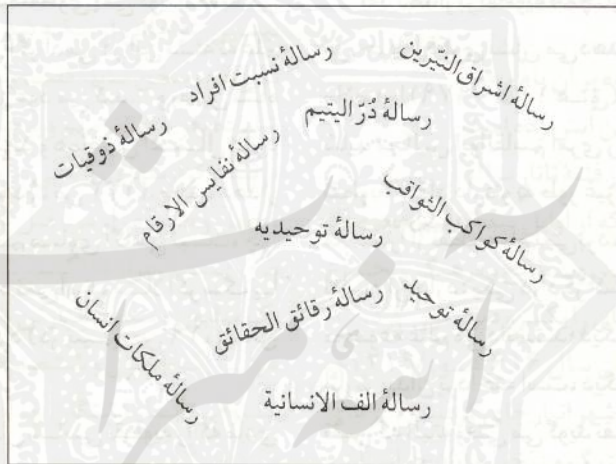 رسالهٔ اشراق النیّرین
رسالهٔ نسبت افراد
رسالهٔ دُرّ الیتیم
رسالهٔ ذوقیات
رسالهٔ نفایس الارقام
رسالهٔ کواکب الثواقب
رسالهٔ توحیدیه
رسالهٔ توحید
رسالهٔ رقائق الحقائق
رسالهٔ ملکات انسان
رسالهٔ الف الانسانیة